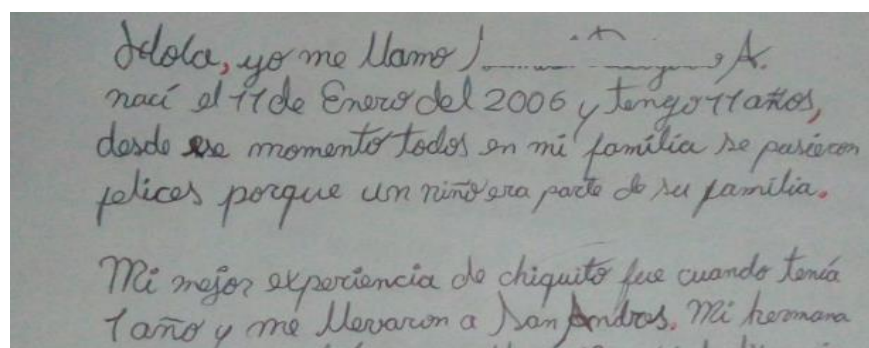 Hola, yo me llamo J A.
nací el 11 de Enero del 2006 y tengo 11 años,
desde ese momento todos en mi família se pusieron
felices porque un niño era parte de su família.
Mi mejor experiencia de chiquito fue cuando tenía
1 año y me llevaron a San Andres. Mi hermana